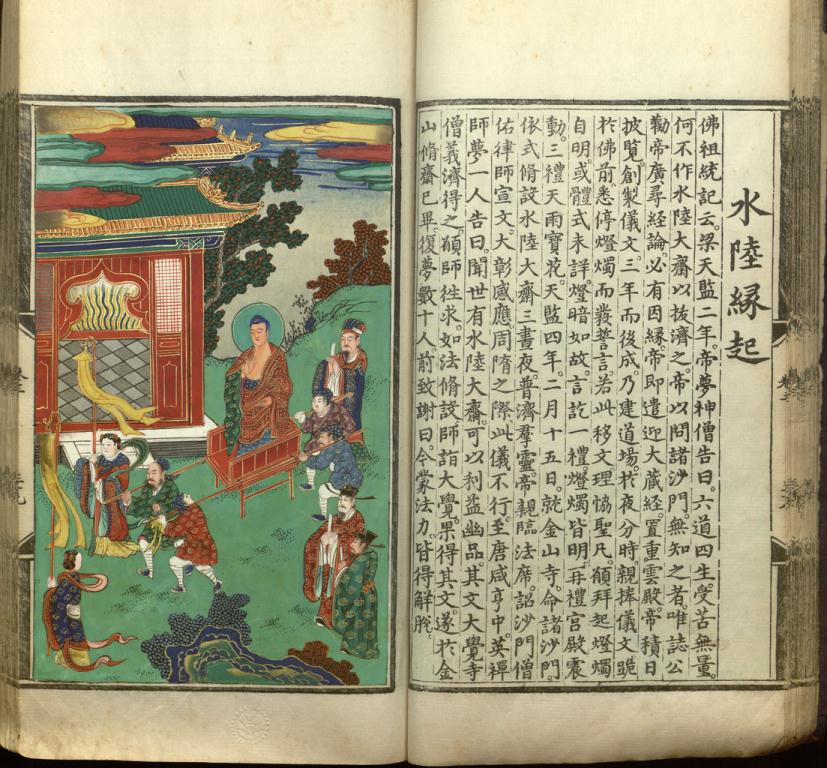 水陸縁起
佛祖統記云。梁天監二年。帝夢神僧告曰。六道四生。受苦無量。
何不作水陸大齋以拔濟之。帝以問諸沙門無知之者。唯誌公
勸帝廣尋經論。必有因緣。帝即遣迎大藏經。置重雲殿。帝積日
披覽。創製儀文。三年而後成。乃建道場。於夜分時。親捧儀文。跪
於佛前。悉停燈燭。而發誓言。若此移文理恊聖凡。願拜起燈燭
自明。或體式未詳。燈暗如故。言訖一禮。燈燭皆明。再禮宮殿震
動。三禮天雨寶花。天監四年。二月十五日。就金山寺。命諸沙門
依式脩設水陸大齋三晝夜。普濟羣靈。帝親臨法席。詔沙門僧
佑律師宣文。大彰感應。周隋之際。此儀不行。至唐咸亨中。英禪
師夢一人告曰。聞世有水陸大齋。可以利益幽品。其文大覺寺
僧義濟得之。願師徃求。如法脩設。師詣大覺。果得其文。遂於金
山脩齋已畢。復夢數十人前致謝曰。今蒙法力。皆得解脫。